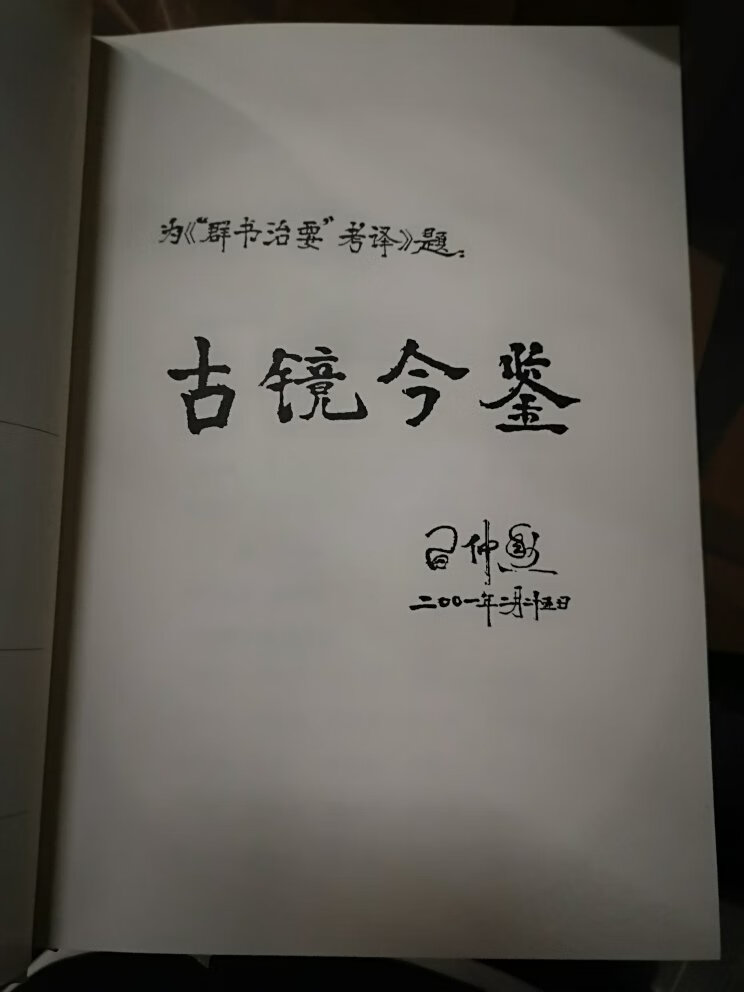 为《“群书治要”考译》题：
古镜今鉴
习仲勋
二〇〇一年二月二十五日